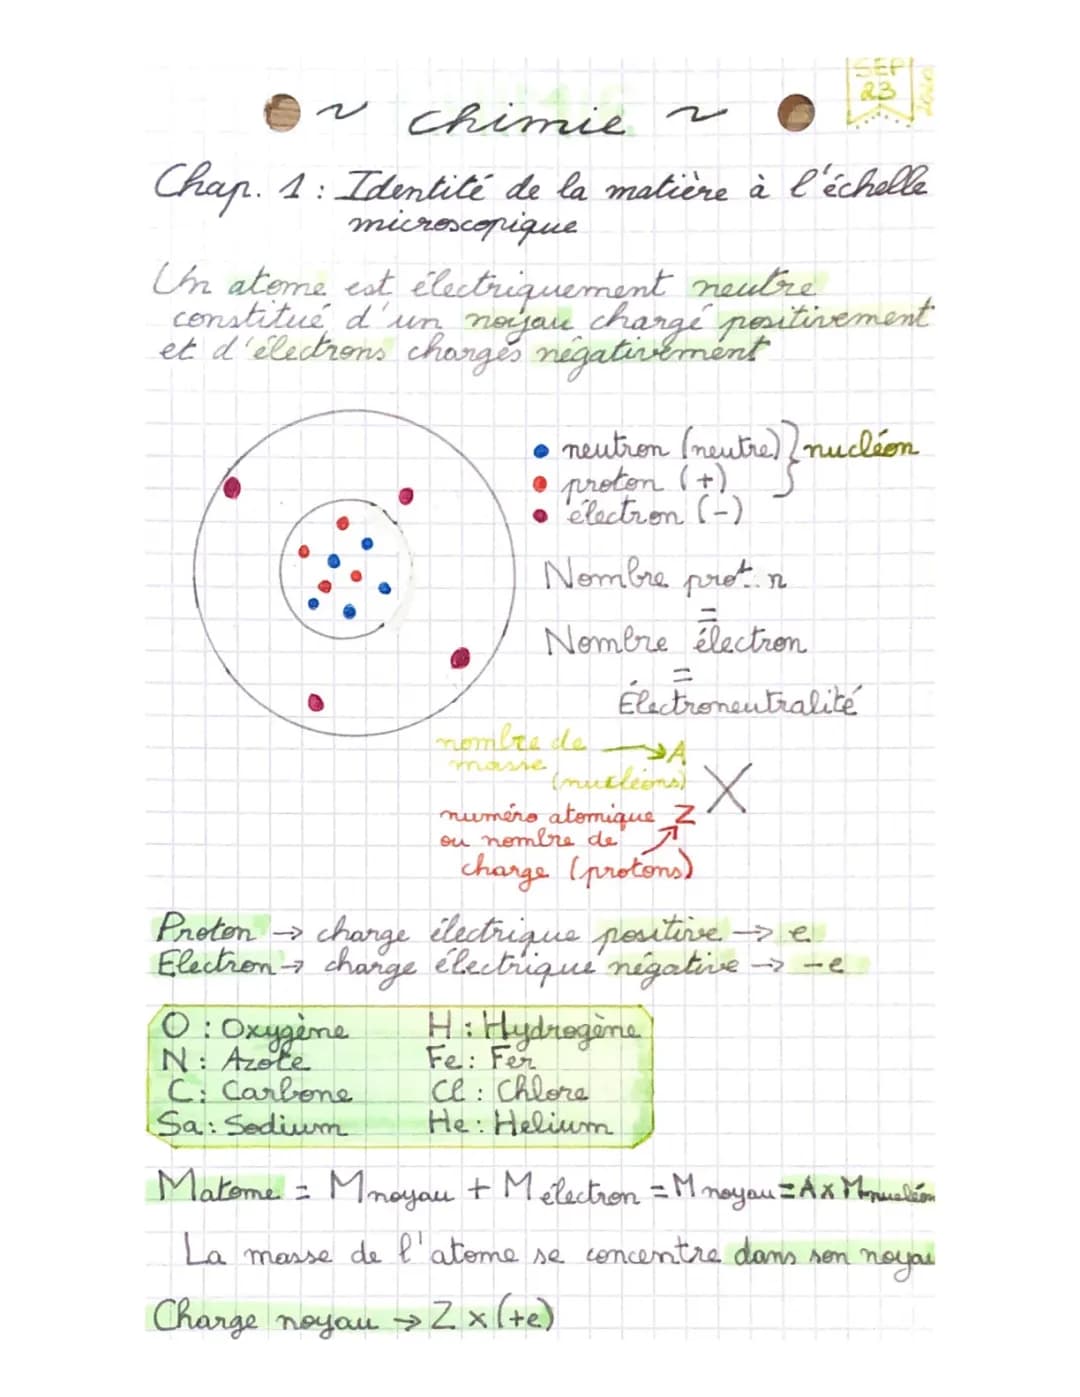 SEP
23
~ chimie ~
Chap. 1 : Identité de la matière à l'échelle
microscopique
Un atome est électriquement neutre
constitué d'un noyau chargé positivement
et d'électrons chargés négativement
neutron (neutre) } nucléon
proton (+)
électron (-)
Nombre prot n
=
Nombre électron
=
Électroneutralité
nombre de → A
masse
(nucléons)
X
numéro atomique Z
ou nombre de
charge (protons)
Proton → charge électrique positive → e
Electron → charge électrique négative → -e
O : Oxygène H : Hydrogène
N : Azote Fe : Fer
C : Carbone Cl : Chlore
Sa : Sodium He : Helium
Matome = Mnoyau + Mélectron = Mnoyau = A x Mnucléon
La masse de l'atome se concentre dans son noyau
Charge noyau → Z x (+e)